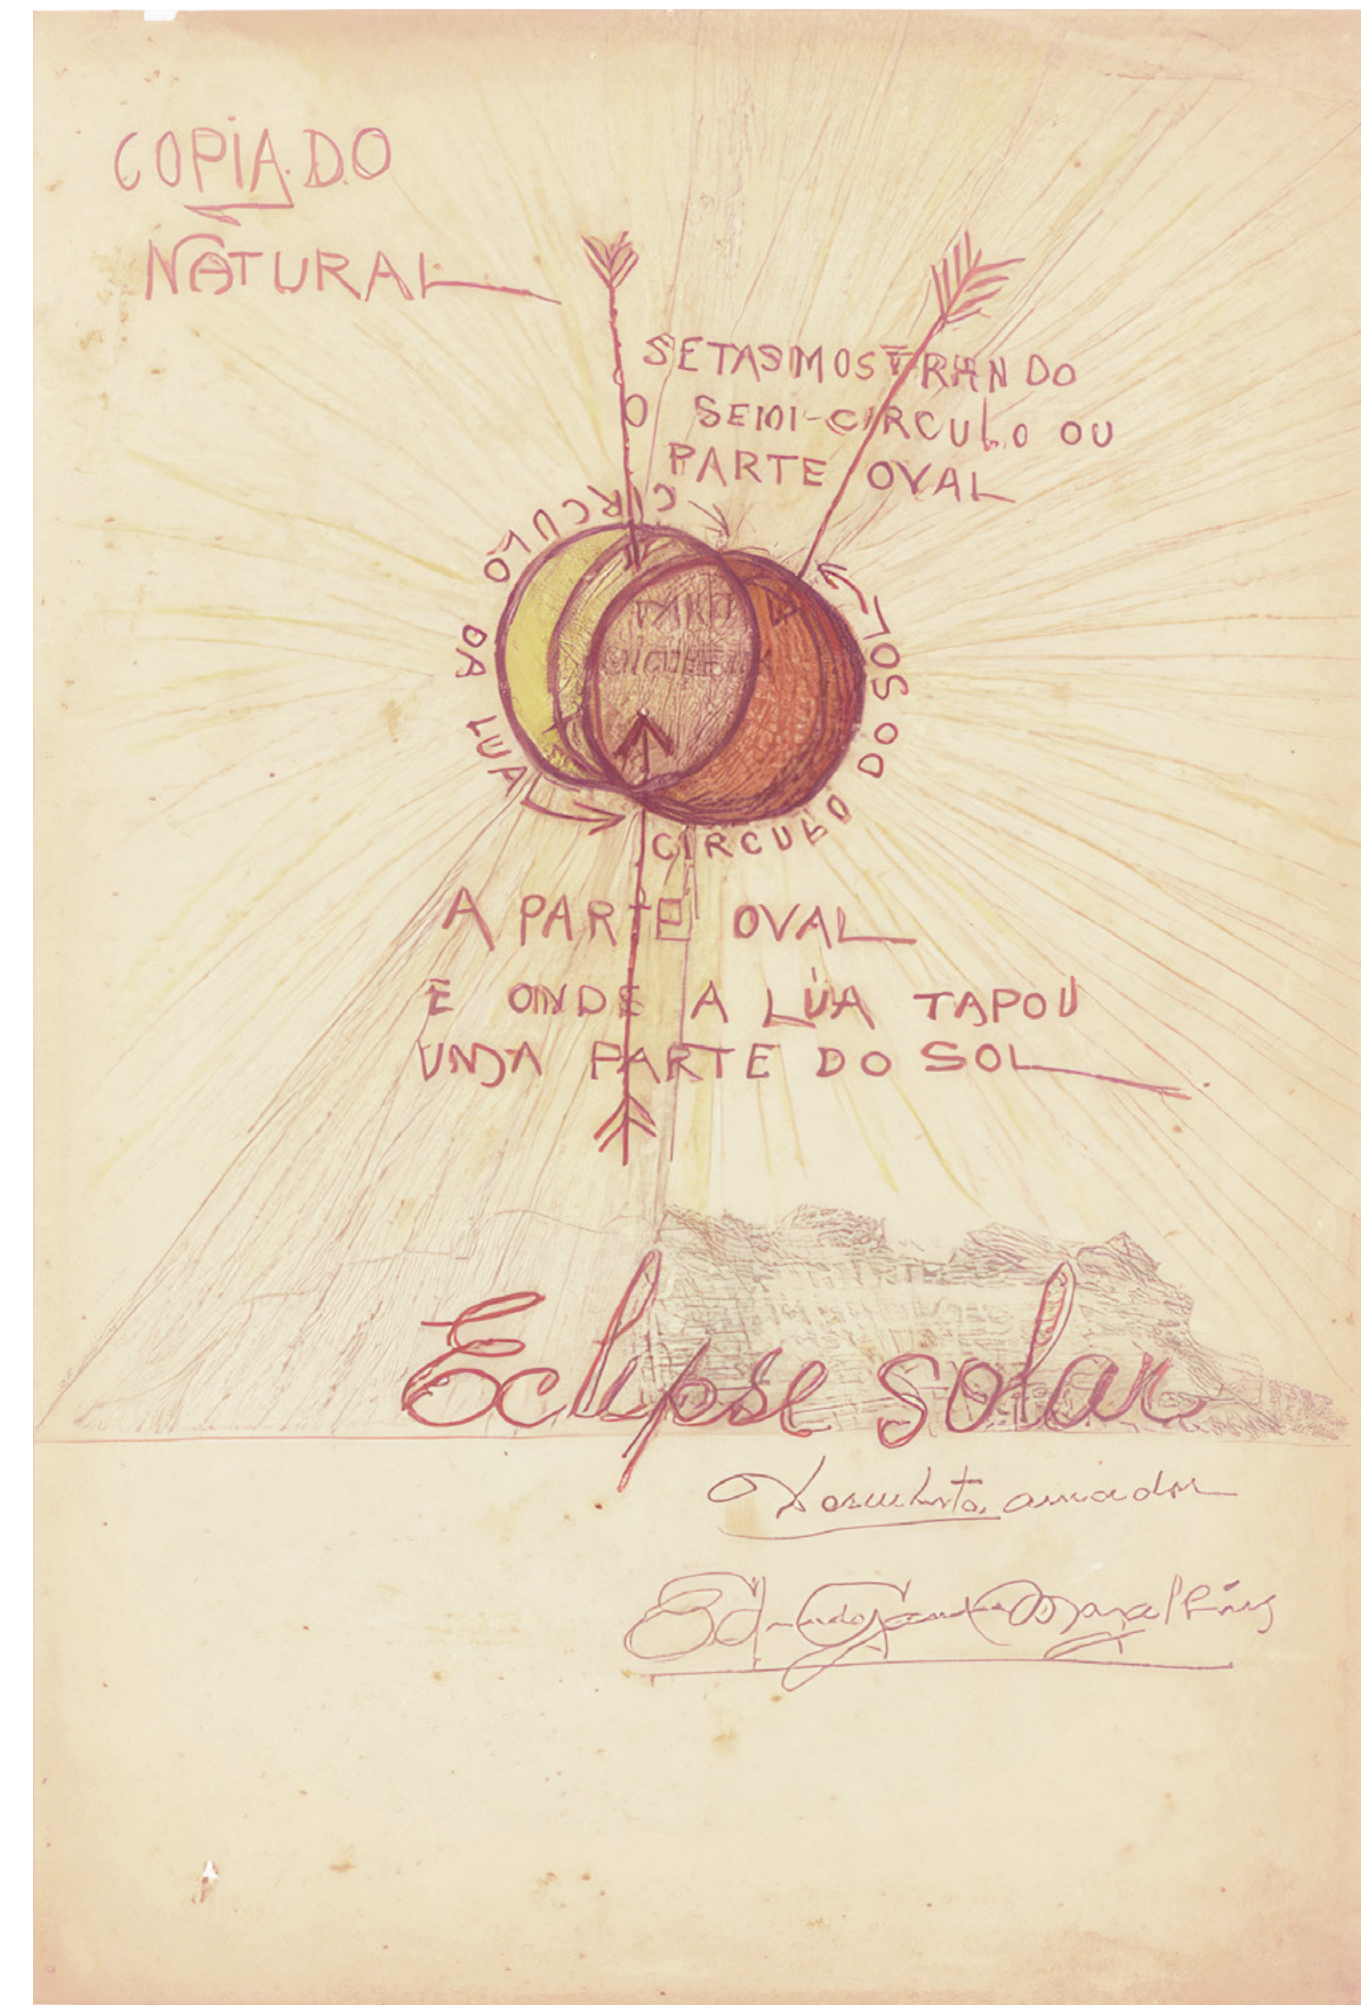 COPIADO
NATURAL
SETAS MOSTRANDO
O SEMI-CIRCULO OU
PARTE OVAL
CIRCULO DA LUA
CIRCULO DO SOL
A PARTE OVAL
E ONDE A LÚA TAPOU
UMA PARTE DO SOL
Eclipse solar
amador
Magalhães